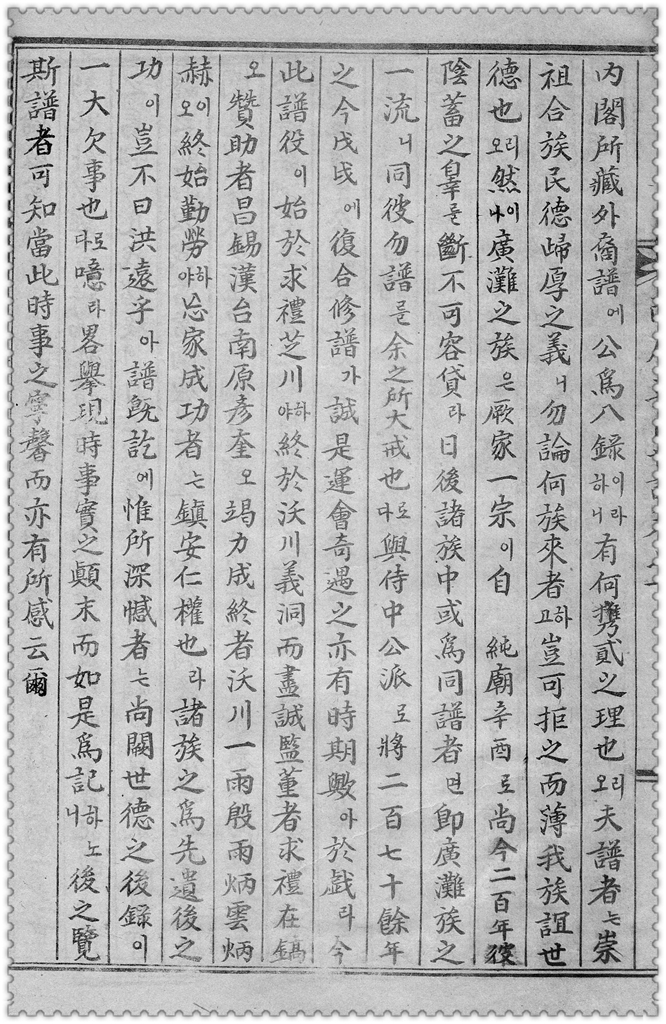 內閣所藏外裔譜에公爲八錄이라하니有何携貳之理也오리夫譜者는崇
祖合族民德歸厚之義니勿論何族來者하고豈可拒之而薄我族誼世
德也오리然이나廣灘之族은厥家一宗이自 純廟辛酉로尚今二百年彼
陰蓄之辜를斷不可容貸라日後諸族中或爲同譜者면卽廣灘族之
一流니同彼勿譜를余之所大戒也로다與侍中公派로將二百七十餘年
之今戊戌에復合修譜가誠是運會奇遇之亦有時期歟아於戱라今
此譜役이始於求禮芝川하야終於沃川義洞而盡誠監董者求禮在鎬
오贊助者昌錫漢台南原彦奎오竭力成終者沃川一雨殷雨炳雲炳
赫이오終始勤勞하야忘家成功者는鎭安仁權也라諸族之爲先遺後之
功이豈不曰洪遠乎아譜旣訖에惟所深憾者는尚闕世德之後錄이
一大欠事也로다噫라畧擧現時事實之顚末而如是爲記하니노後之覽
斯譜者可知當此時事之寧馨而亦有所感云爾